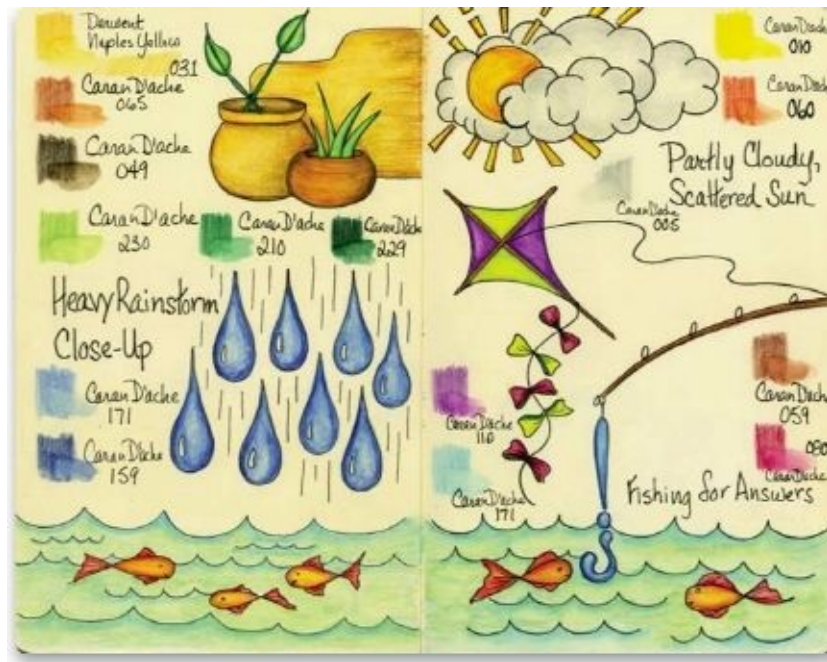 Derwent
Naples Yellow
031
Caran D'ache
065
Caran D'ache
049
Caran D'ache
230
Caran D'ache
210
Caran D'ache
229
Heavy Rainstorm
Close-Up
Caran D'ache
171
Caran D'ache
159
Caran D'ache
010
Caran D'ache
060
Partly Cloudy,
Scattered Sun
Caran D'ache
005
Caran D'ache
110
Caran D'ache
171
Caran D'ache
059
080
Caran D'ache
Fishing for Answers